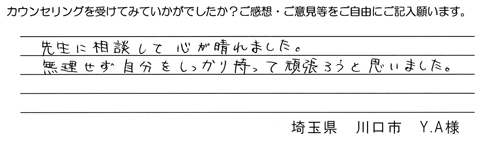 カウンセリングを受けてみていかがでしたか？ご感想・ご意見等をご自由にご記入願います。
先生に相談して心が晴れました。
無理せず自分をしっかり持って頑張ろうと思いました。
埼玉県 川口市 Y.A様